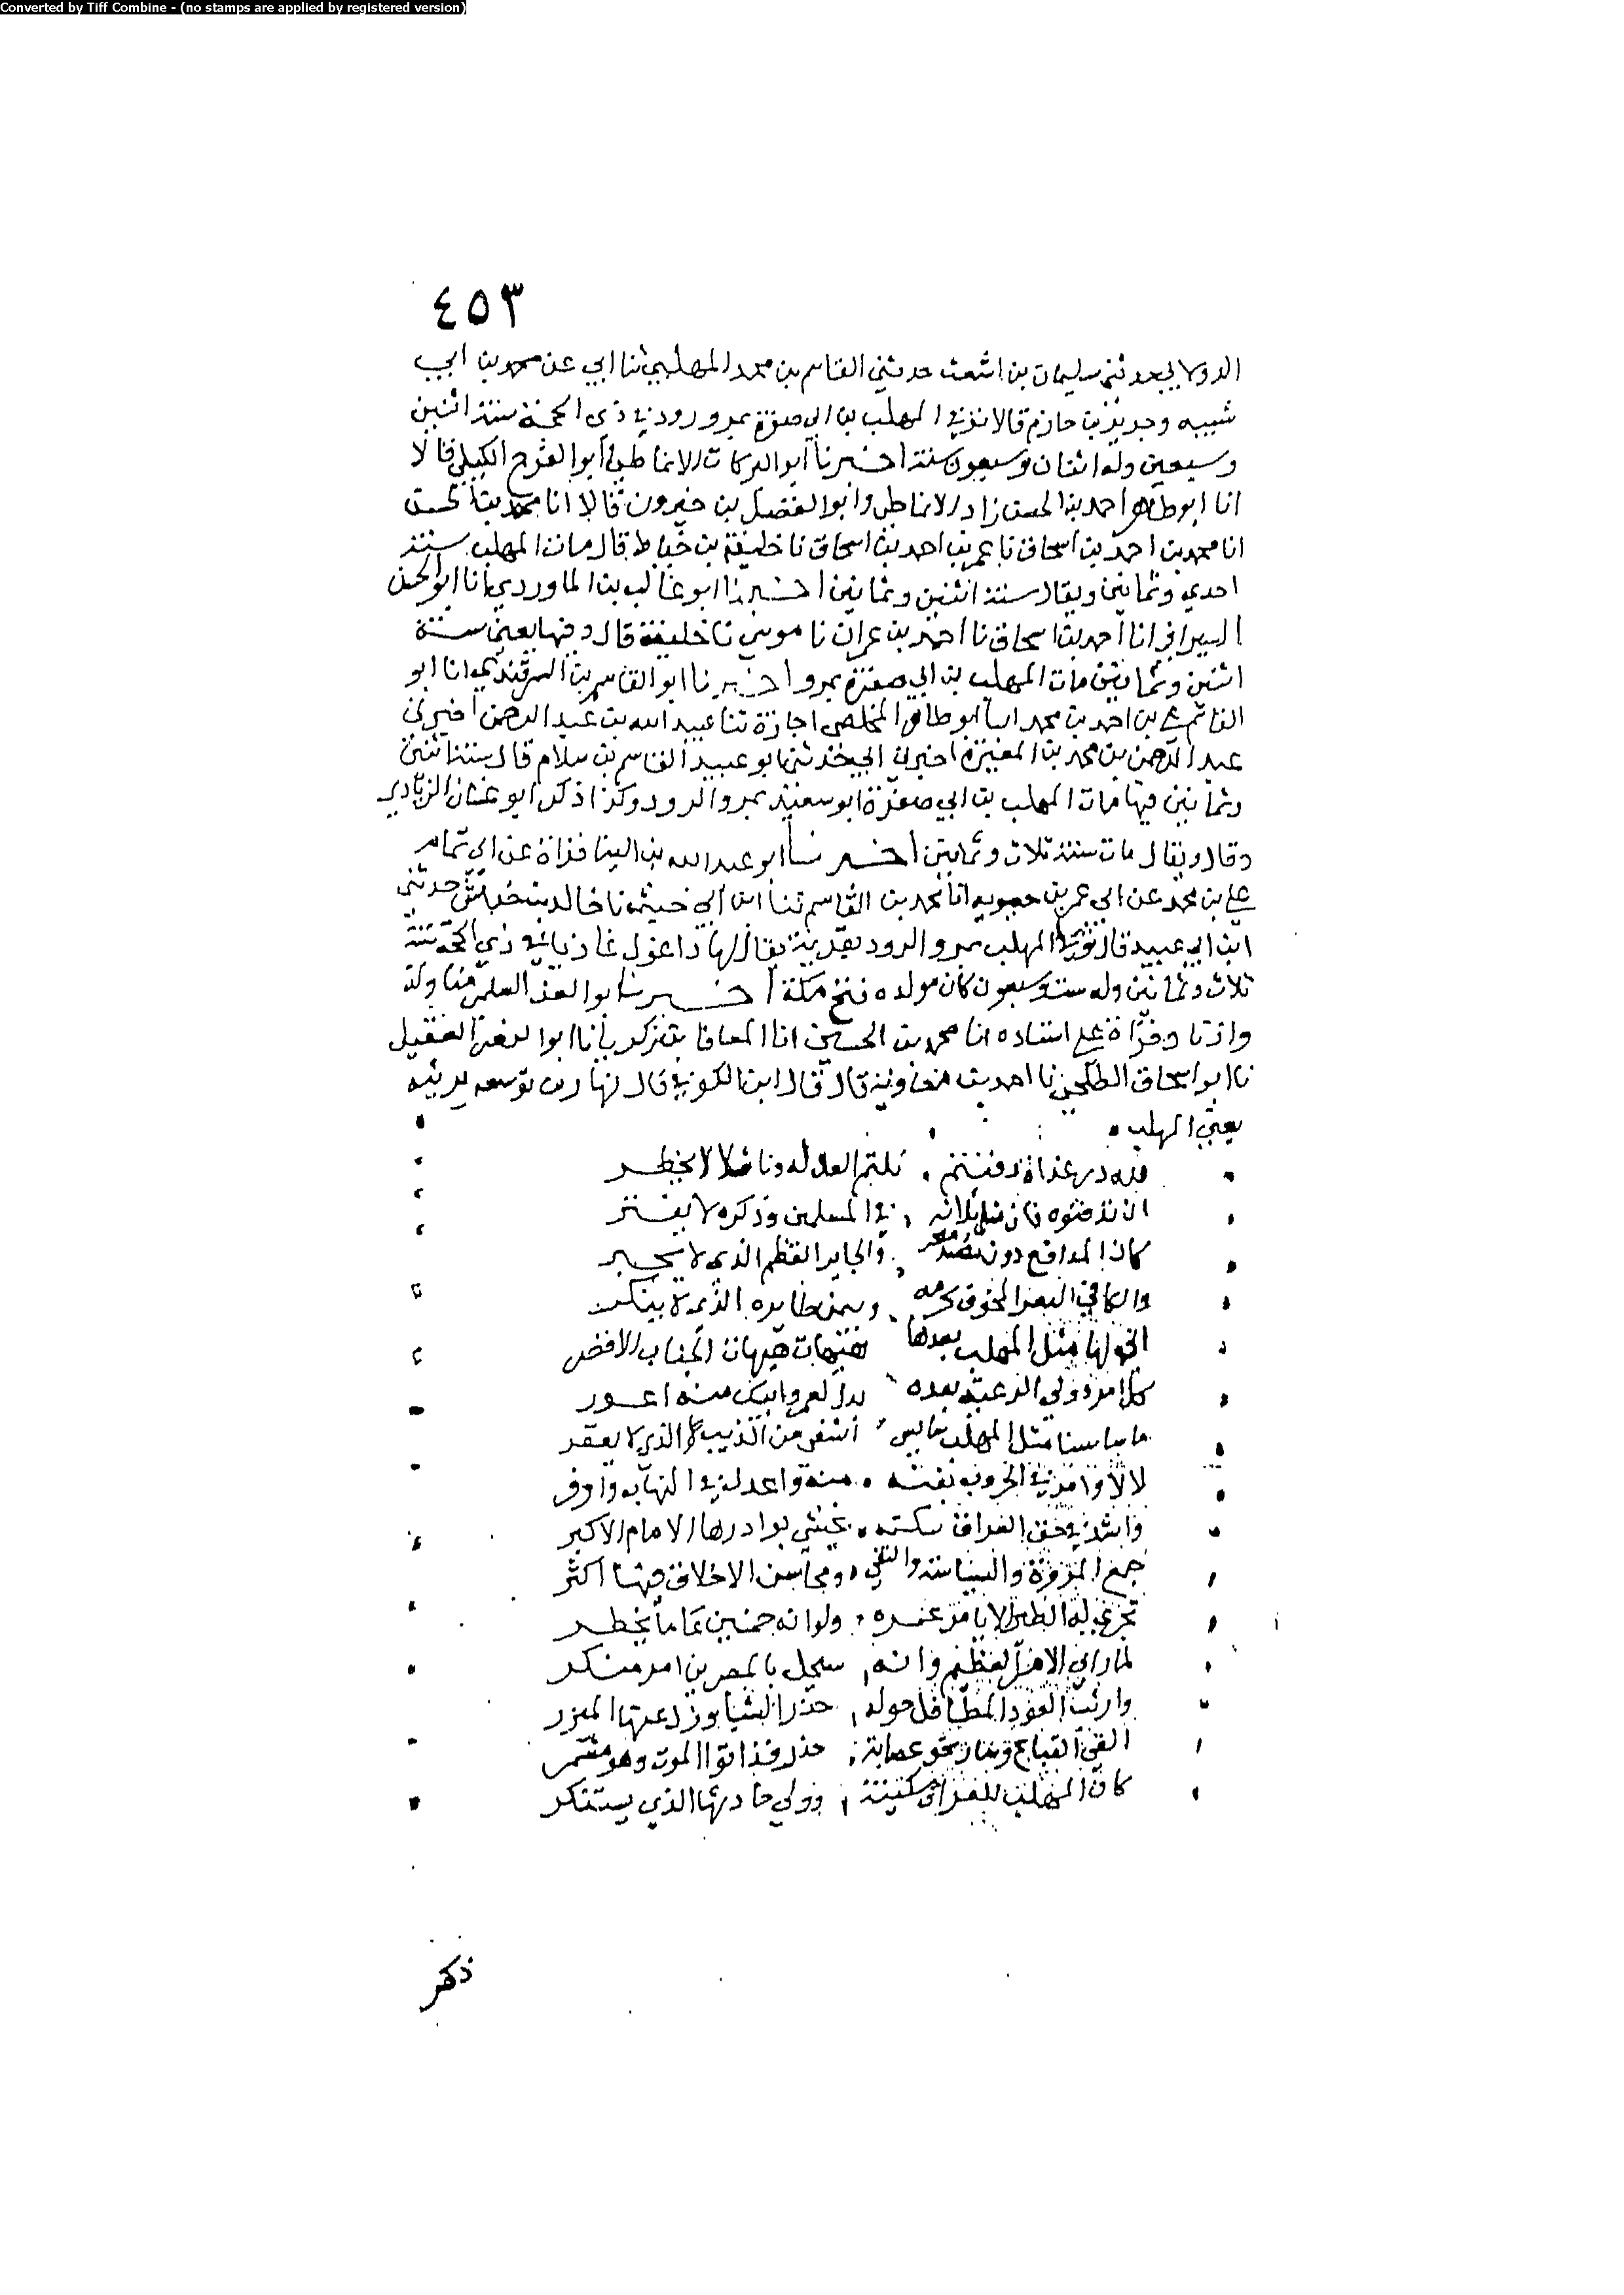 Converted by Tiff Combine - (no stamps are applied by registered version)
٤٥٣
الدولابي حدثني سليمان بن اشعث حدثني القاسم بن محمد المهلبي ثنا ابي عن محمد بن ابي
شيبه وجرير بن حازم قالا توفي المهلب بن ابي صفرة بمرو رود في ذي الحجة سنة اثنتين
وسبعين وله اثنتان وسبعون سنة اخبرنا ابو البركات الانماطي وابو الفرج الكيلي قالا
انا ابو طاهر احمد بن الحسن زاد الانماطي وابو الفضل بن خيرون قالا انا محمد بن الحسن
انا محمد بن احمد بن اسحاق نا عمر بن احمد بن اسحاق نا خليفة بن خياط قال مات المهلب سنة
احدي وثمانين ويقال سنة اثنتين وثمانين اخبرنا ابو غالب بن الماوردي انا ابو الحسن
السيرافي انا احمد بن اسحاق نا احمد بن عمران نا موسي نا خليفة قال وفيها يعني سنة
اثنين وثمانين مات المهلب بن ابي صفرة بمرو اخبرنا ابو القاسم بن السمرقندي انا ابو
القاسم علي بن احمد بن محمد انبا ابو طاهر المخلص اجازة ثنا عبيد الله بن عبد الرحمن اخبرني
عبد الرحمن بن محمد بن المغيرة اخبرني ابي حدثني ابو عبيد القاسم بن سلام قال سنة اثنين
وثمانين فيها مات المهلب بن ابي صفرة ابو سعيد بمرو الرود وكذا ذكر ابو حسان الزيادي
وقال ويقال مات سنة ثلاث وثمانين اخبرنا ابو عبد الله بن البنا قراة عن ابي تمام
علي بن محمد عن ابي عمر بن حيويه انا محمد بن القاسم ثنا ابن ابي خيثمه نا خالد بن خداش حدثني
ابن ابي عبيد قال توفي المهلب بمرو الرود بقرية يقال لها زاغول غازيا في ذي الحجة سنة
ثلاث وثمانين وله ست وسبعون كان مولده فتح مكة اخبرنا ابو العز السلمي مناولة
واذنا وقراة علي اسناده انا محمد بن الحسين انا المعافا بن زكريا نا ابو النضر العقيلي
نا ابو اسحاق الطلحي نا احمد بن معاوية قال قال ابن الكوفي قال نهار بن توسعه يرثيه
يعني المهلب
لله در غداة دفنتم
ان تدفنوه فان مثل بلائه في المسلمين وذكره لا يقبر
كان المدافع دون والجابر العظم الذي لا يجبر
والكافي الثغر المخوف بحزمه وبيمن طايره الذي لا ينكر
اني لها مثل المهلب بعدها هيهات هيهات الجناب الاخضر
كل امرء ولي الرعية بعده بدل لعمر ابيك منه اعور
ما ساسنا مثل المهلب سايس
لا لا وايمن في الحروب نقيبة منه واعدل في النهاب واوفر
واشد في حق العراق شكيمة يخشي بوادرها الامام الاكبر
جمع المروة والسياسة والتقي ومحاسن الاخلاق فيها اكثر
تجري له الطير الايامن عمره ولو انه خمسين عاما يخطر
لما راي الامر العظيم وانه سيحل بالمصرين امر منكر
وارنت العوذ المطافل حوله حذر السبا
القي القناع وسار نحو عصابة حذر فذاقوا الموت وهو مشمر
كان المهلب للعراق سكينة وولي حادثها الذي يستنكر
ذكر